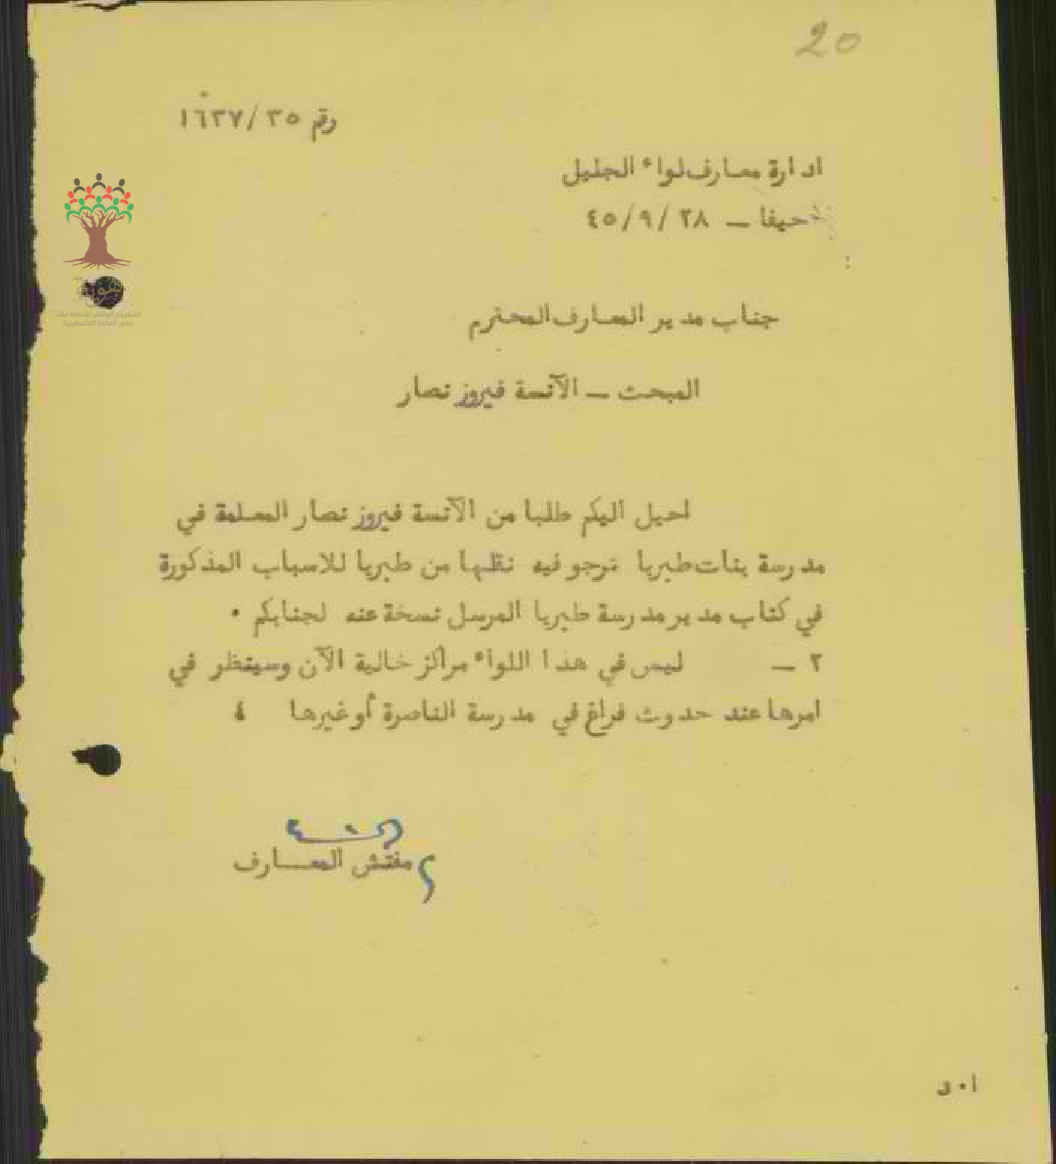 20
رقم ٣٥/١٦٣٧
ادارة معارف لواء الجليل
حيفا – ٢٨/٩/٤٥
جناب مدير المعارف المحترم
المبحث – الآنسة فيروز نصار
احيل اليكم طلبا من الآنسة فيروز نصار المعلمة في
مدرسة بنات طبريا ترجو فيه نقلها من طبريا للاسباب المذكورة
في كتاب مدير مدرسة طبريا المرسل نسخة عنه لجنابكم ٠
٢ – ليس في هذا اللواء مراكز خالية الآن وسينظر في
امرها عند حدوث فراغ في مدرسة الناصرة أو غيرها
مفتش المعـــارف
هوية